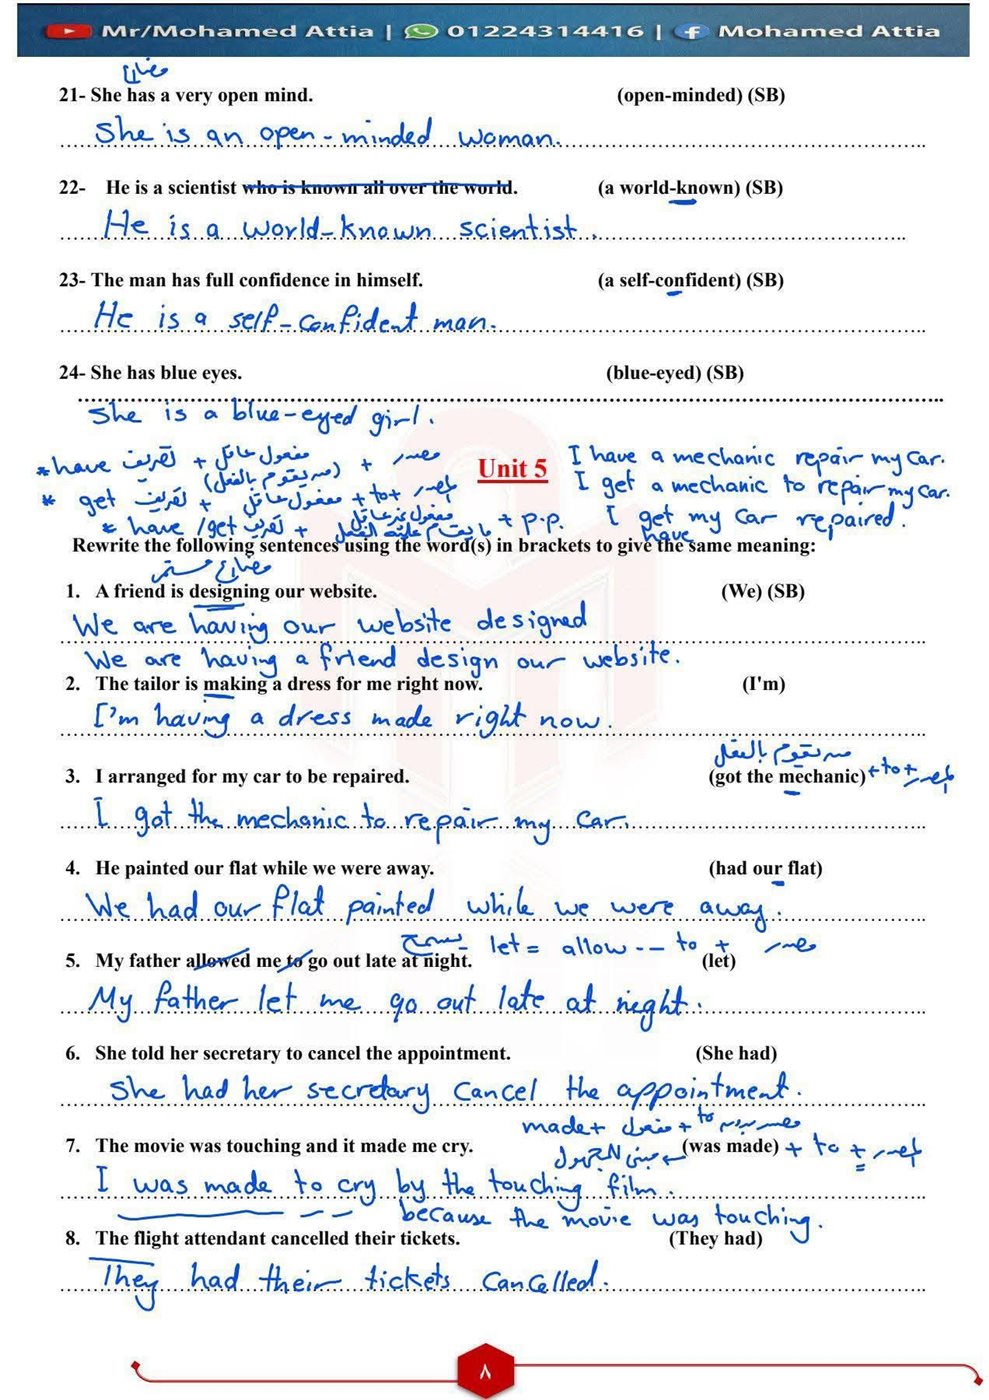 Mr/Mohamed Attia | 01224314416 | Mohamed Attia
مضارع
21- She has a very open mind. (open-minded) (SB)
She is an open-minded woman.
22- He is a scientist who is known all over the world. (a world-known) (SB)
He is a world-known scientist.
23- The man has full confidence in himself. (a self-confident) (SB)
He is a self-confident man.
24- She has blue eyes. (blue-eyed) (SB)
She is a blue-eyed girl.
*have تصريف + مفعول عاقل (من يقوم بالفعل) + مصدر
* get تصريف + مفعول عاقل + to + المصدر
* have/get تصريف + مفعول غير عاقل ما يتم عليه الفعل + p.p.
Unit 5
I have a mechanic repair my car.
I get a mechanic to repair my car.
I get my car repaired.
have
Rewrite the following sentences using the word(s) in brackets to give the same meaning:
مضارع مستمر
1. A friend is designing our website. (We) (SB)
We are having our website designed
We are having a friend design our website.
2. The tailor is making a dress for me right now. (I'm)
I'm having a dress made right now.
من يقوم بالفعل
3. I arranged for my car to be repaired. (got the mechanic) + to + المصدر
I got the mechanic to repair my car.
4. He painted our flat while we were away. (had our flat)
We had our flat painted while we were away.
يسمح let = allow -- to + مصدر
5. My father allowed me to go out late at night. (let)
My father let me go out late at night.
6. She told her secretary to cancel the appointment. (She had)
She had her secretary cancel the appointment.
made + مفعول + مصدر بدون to
7. The movie was touching and it made me cry. مبنى للمجهول (was made) + to + المصدر
I was made to cry by the touching film.
because the movie was touching.
8. The flight attendant cancelled their tickets. (They had)
They had their tickets cancelled.
٨